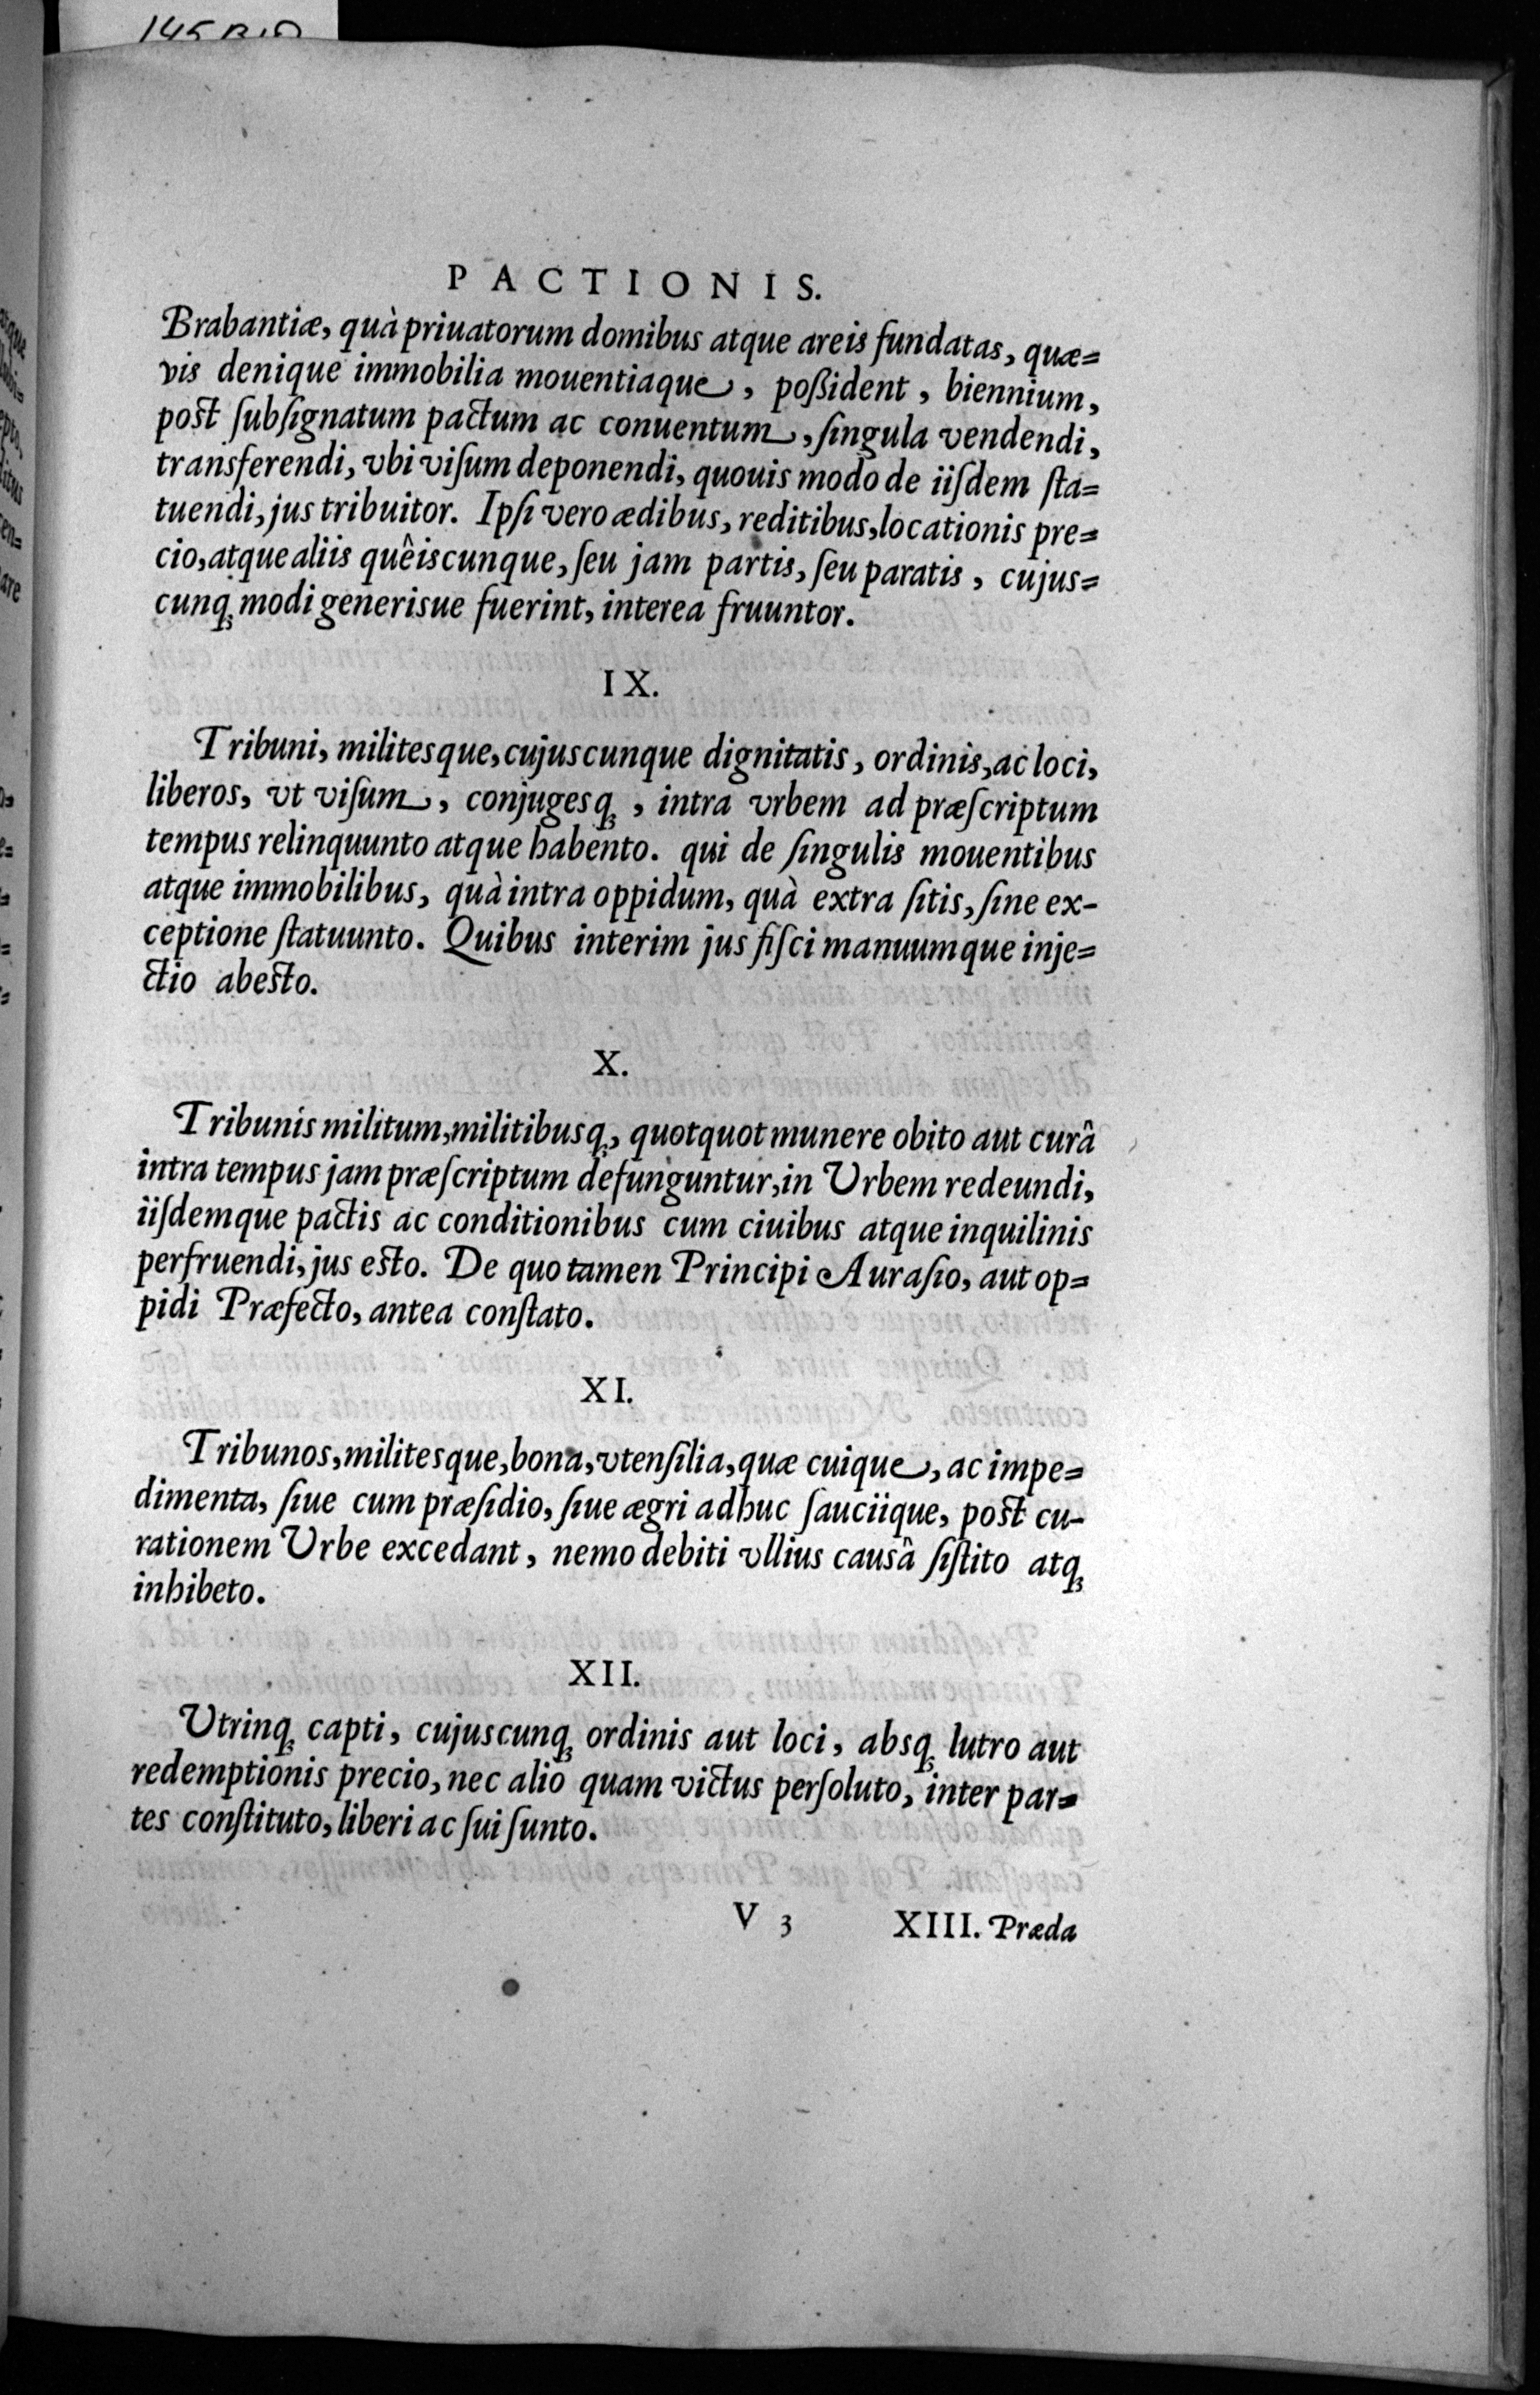 PACTIONIS.
Brabantiæ, quà priuatorum domibus atque areis fundatas, quæ=
vis denique immobilia mouentiaque, poßident, biennium,
post ſubſignatum pactum ac conuentum, ſingula vendendi,
transferendi, vbi viſum deponendi, quouis modo de iiſdem ſta=
tuendi, jus tribuitor. Ipſi vero ædibus, reditibus, locationis pre=
cio, atque aliis quêiscunque, ſeu jam partis, ſeu paratis, cujus=
cunq; modi generisue fuerint, interea fruuntor.
IX.
Tribuni, militesque, cujuscunque dignitatis, ordinis, ac loci,
liberos, vt viſum, conjugesq;, intra vrbem ad præſcriptum
tempus relinquunto atque habento. qui de ſingulis mouentibus
atque immobilibus, quà intra oppidum, quà extra ſitis, ſine ex-
ceptione ſtatuunto. Quibus interim jus fiſci manuumque inje=
ctio abesto.
X.
Tribunis militum, militibusq;, quotquot munere obito aut curâ
intra tempus jam præſcriptum defunguntur, in Urbem redeundi,
iiſdemque pactis ac conditionibus cum ciuibus atque inquilinis
perfruendi, jus esto. De quo tamen Principi Auraſio, aut op=
pidi Præfecto, antea conſtato.
XI.
Tribunos, militesque, bona, vtenſilia, quæ cuique, ac impe=
dimenta, ſiue cum præſidio, ſiue ægri adhuc ſauciique, post cu-
rationem Urbe excedant, nemo debiti vllius causâ ſiſtito atq;
inhibeto.
XII.
Utrinq; capti, cujuscunq; ordinis aut loci, absq; lutro aut
redemptionis precio, nec alio quam victus perſoluto, inter par=
tes conſtituto, liberi ac ſui ſunto.
V 3 XIII. Præda